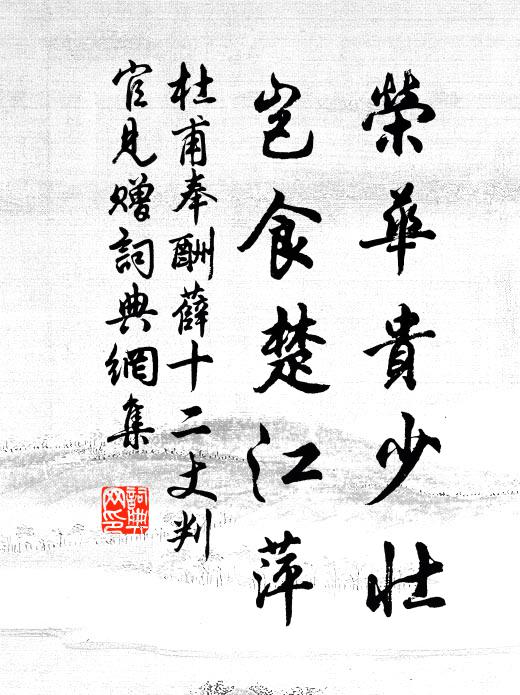 榮華貴少壯
豈食楚江萍
杜甫奉酬薛十二丈判
官見贈詞典網集
詞典
网印